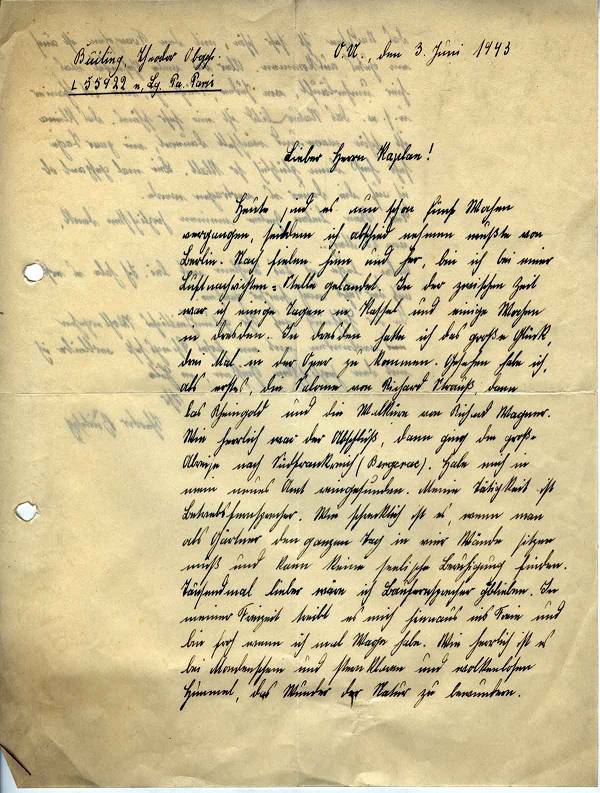 Büiling Theodor Obgfr.
L 55922 n, Lg. Pa. Paris
O.U., den 3. Juni 1943
Lieber Herrn Kaplan!
Heute sind es nun schon fünf Wochen
vergangen, seitdem ich abschied nehmen mußte von
Berlin. Nach vielen hinn und her, bin ich bei einer
Luftnachrichten-Stelle gelandet. In der zwischen Zeit
war ich einige Tagen in Kassel und einige Wochen
in dresden. In dresden hatte ich das große Glück,
drei Mal in der Oper zu kommen. Gesehen habe ich,
als erstes, die Salome von Richard Strauß, dann
das Rheingold und die Walküre von Richard Wagner.
Wie herrlich war der Abschluß, dann ging die große
Abreise nach Südfrankreich (Bergerac). Habe mich in
mein neues Amt eingefunden. Meine Tätigkeit ist
Betriebsfernsprecher. Wie schrecklich ist es, wenn man
als Gärtner den ganzen Tag in vier Wände sitzen
muß und kann keine seelische Beruhigung finden.
Tausendmal lieber wäre ich Baufernsprecher geblieben. In
meiner Freizeit treibt es mich hinaus ins Freie und
bin froh wenn ich mal Wache habe. Wie herrlich ist es
bei Mondenschein und sternklaren und wolkenlosen
Himmel, das Wunder der Natur zu bewundern.